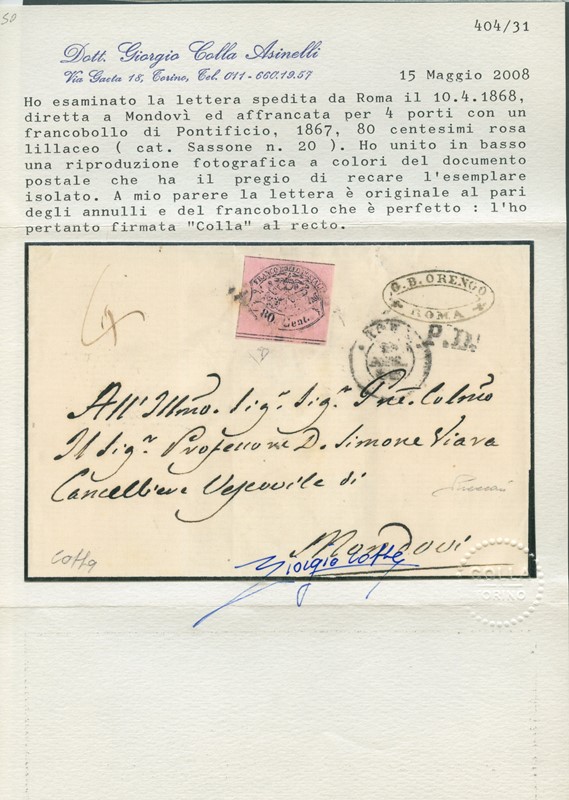 50
404/31
Dott. Giorgio Colla Asinelli
Via Gaeta 18, Torino, Tel. 011 - 660.19.57
15 Maggio 2008
Ho esaminato la lettera spedita da Roma il 10.4.1868,
diretta a Mondovì ed affrancata per 4 porti con un
francobollo di Pontificio, 1867, 80 centesimi rosa
lillaceo ( cat. Sassone n. 20 ). Ho unito in basso
una riproduzione fotografica a colori del documento
postale che ha il pregio di recare l'esemplare
isolato. A mio parere la lettera è originale al pari
degli annulli e del francobollo che è perfetto : l'ho
pertanto firmata "Colla" al recto.
80 Cent.
G.B. ORENGO
ROMA
ROMA
P.D.
All' Illmo. Sigr. Sigr. Prne. Colmo
Il Sigr. Professore D. Simone Viara
Cancelliere Vescovile di
Mondovi
Colla
Giorgio Colla
COLLA
TORINO